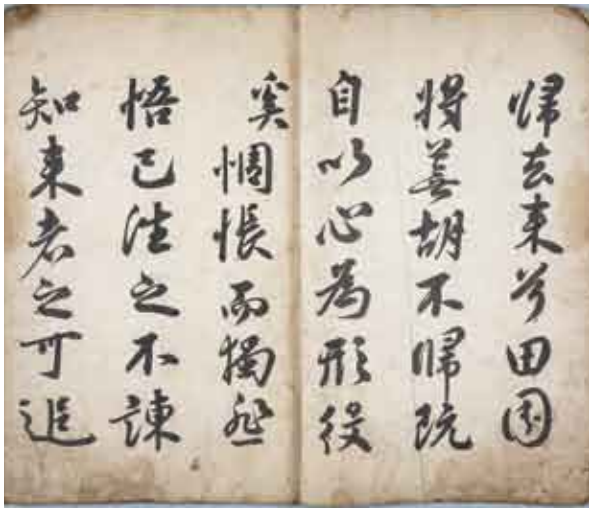 歸去来兮田園
將蕪胡不歸既
自以心為形役
奚惆悵而獨悲
悟已往之不諫
知来者之可追